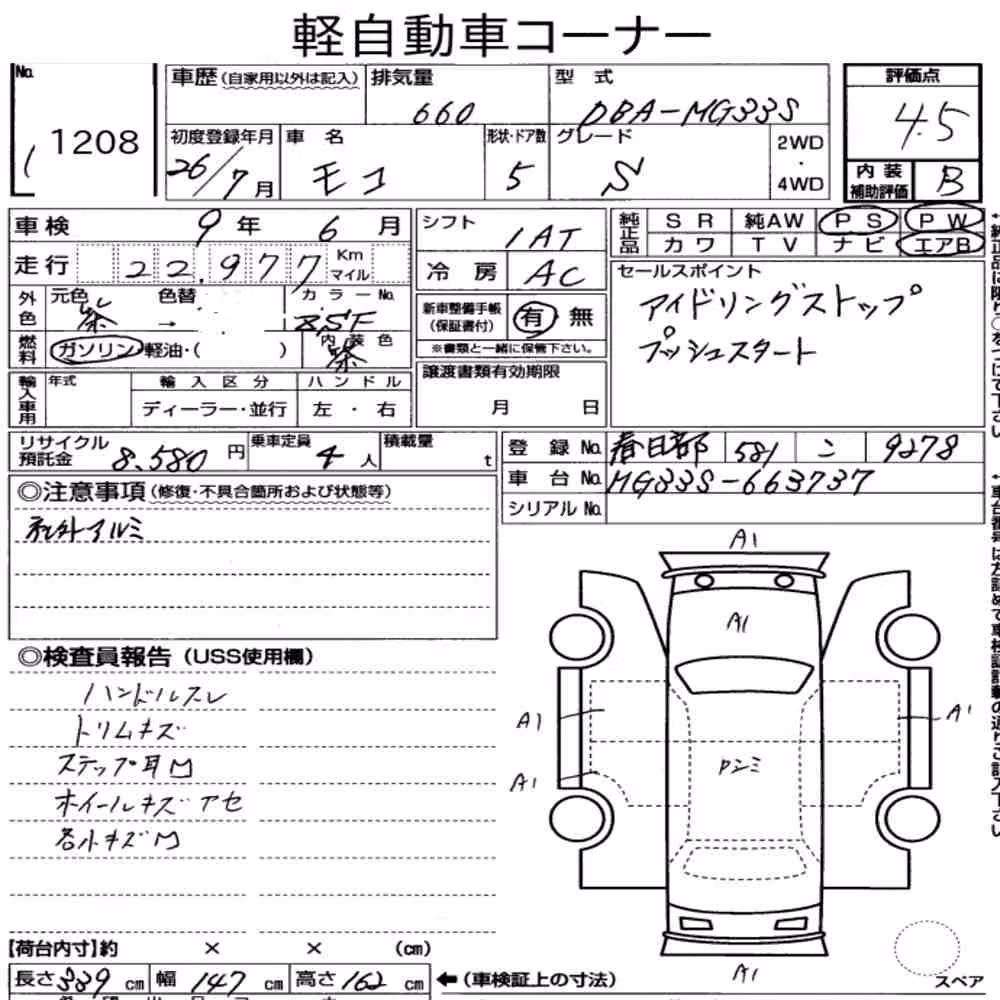 軽自動車コーナー
No.
1208
車歴(自家用以外は記入)
排気量
660
型式
DBA-MG33S
評価点
4.5
初度登録年月
26/7月
車名
モコ
形状・ドア数
5
グレード
S
2WD
・
4WD
内装
補助評価
B
車検
9年 6月
シフト
IAT
純正品
SR 純AW PS PW
カワ TV ナビ エアB
走行
22,977
Km
マイル
冷房
AC
セールスポイント
アイドリングストップ
プッシュスタート
外色
元色
茶
→
色替
カラーNo.
新車整備手帳
(保証書付)
有 無
※書類と一緒に保管下さい。
燃料
ガソリン・軽油・( )
内装色
茶
輸入車用
年式
輸入区分
ディーラー・並行
ハンドル
左・右
譲渡書類有効期限
月 日
リサイクル
預託金
8,580円
乗車定員
4人
積載量
t
登録No.
春日部 581 こ 9278
車台No.
MG33S-663737
シリアルNo.
◎注意事項(修復・不具合箇所および状態等)
社外アルミ
◎検査員報告(USS使用欄)
ハンドルスレ
トリムキズ
ステップ耳凹
ホイールキズアセ
各小キズ凹
A1
A1
A1
A1
A1
A1
スペア
【荷台内寸】約 × × (cm)
長さ339cm 幅147cm 高さ162cm
←(車検証上の寸法)